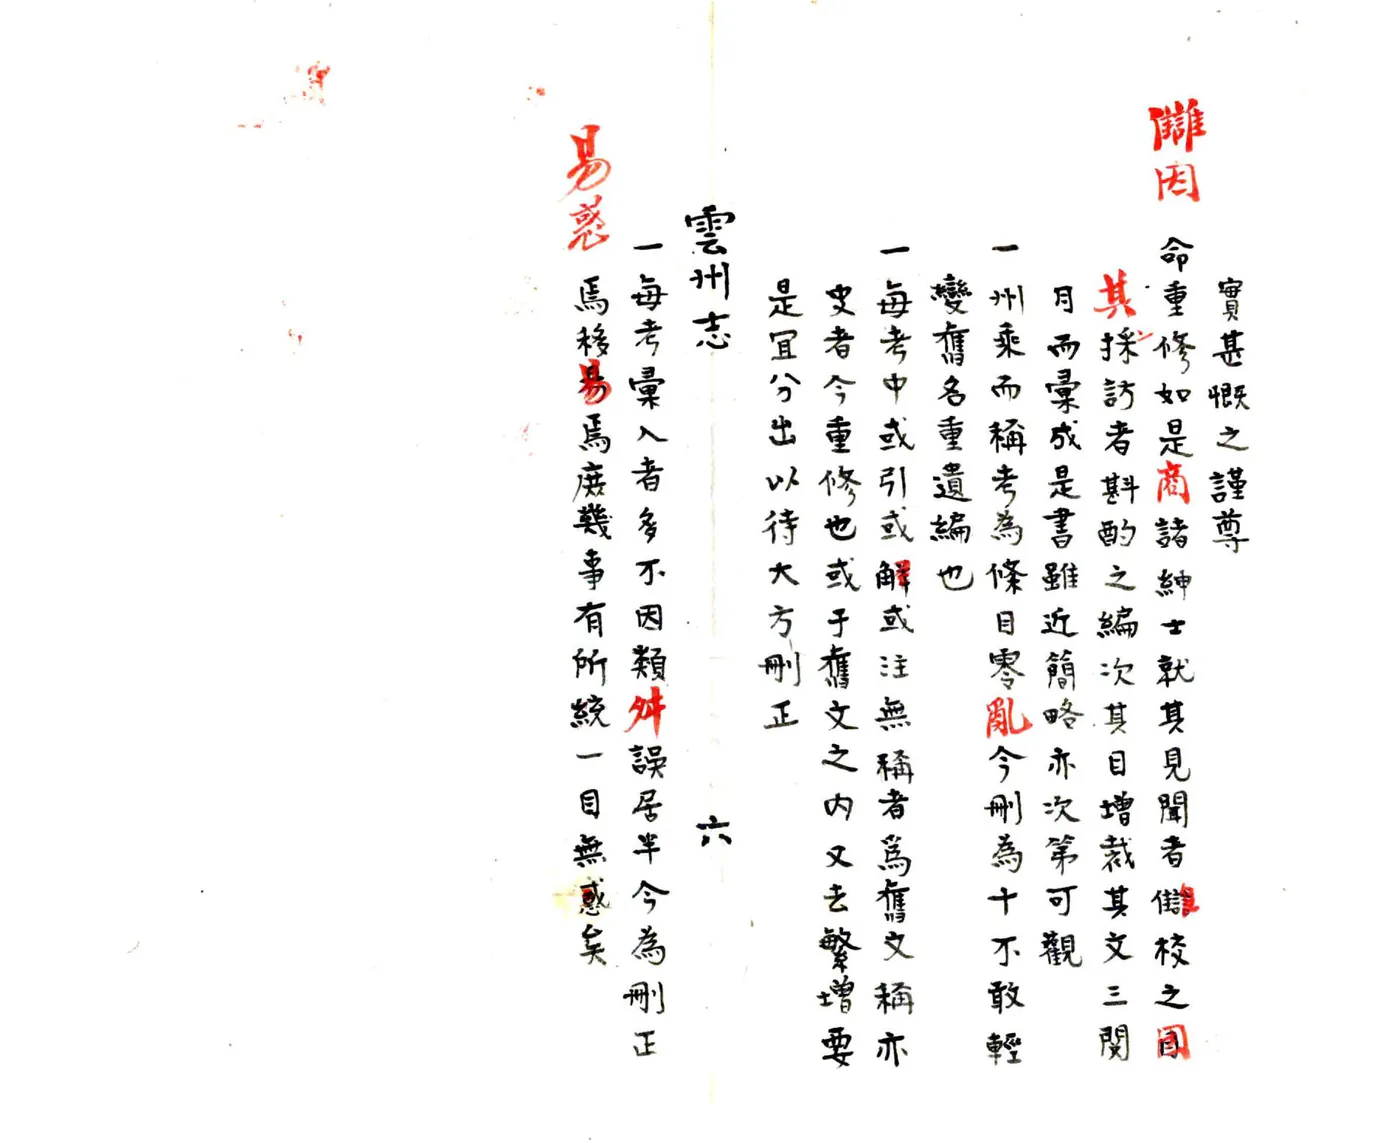 實甚慨之謹尊
讎因
命重修如是商諸紳士就其見聞者讎校之因
其採訪者斟酌之編次其目增裁其文三閱
月而彙成是書雖近簡略亦次第可觀
一州乘而稱考為條目零亂今刪為十不敢輕
變舊名重遺編也
一每考中或引或解或注無稱者爲舊文稱亦
史者今重修也或于舊文之內又去繁增要
是宜分出以待大方刪正
雲州志 六
一每考彙入者多不因類舛誤居半今為刪正
易惑
焉移易焉庶幾事有所統一目無惑矣